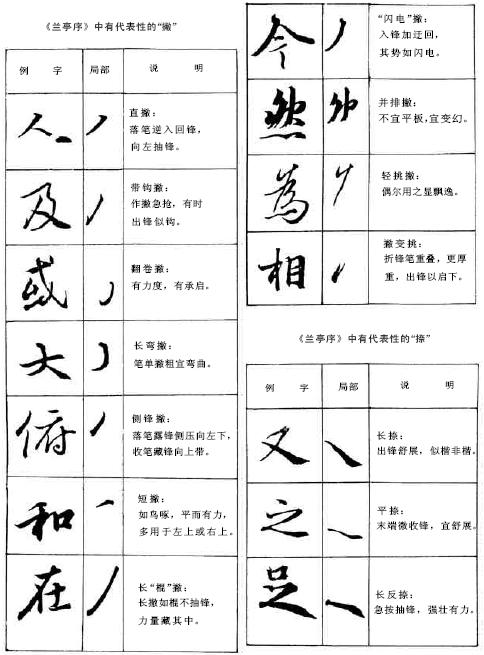 《兰亭序》中有代表性的“撇”
例 字 局部 说 明
人 直撇：
落笔逆入回锋，
向左抽锋。
及 带钩撇：
作撇急抢，有时
出锋似钩。
或 翻卷撇：
有力度，有承启。
大 长弯撇：
笔单撇粗宜弯曲。
俯 侧锋撇：
落笔露锋侧压向左下，
收笔藏锋向上带。
和 短撇：
如鸟啄，平而有力，
多用于左上或右上。
在 长“棍”撇：
长撇如棍不抽锋，
力量藏其中。
今 “闪电”撇：
入锋加迂回，
其势如闪电。
然 并排撇：
不宜平板，宜变幻。
為 轻挑撇：
偶尔用之显飘逸。
相 撇变挑：
折锋笔重叠，更厚
重，出锋以启下。
《兰亭序》中有代表性的“捺”
例 字 局部 说 明
又 长捺：
出锋舒展，似楷非楷。
之 平捺：
末端微收锋，宜舒展。
足 长反捺：
急按抽锋，强壮有力。